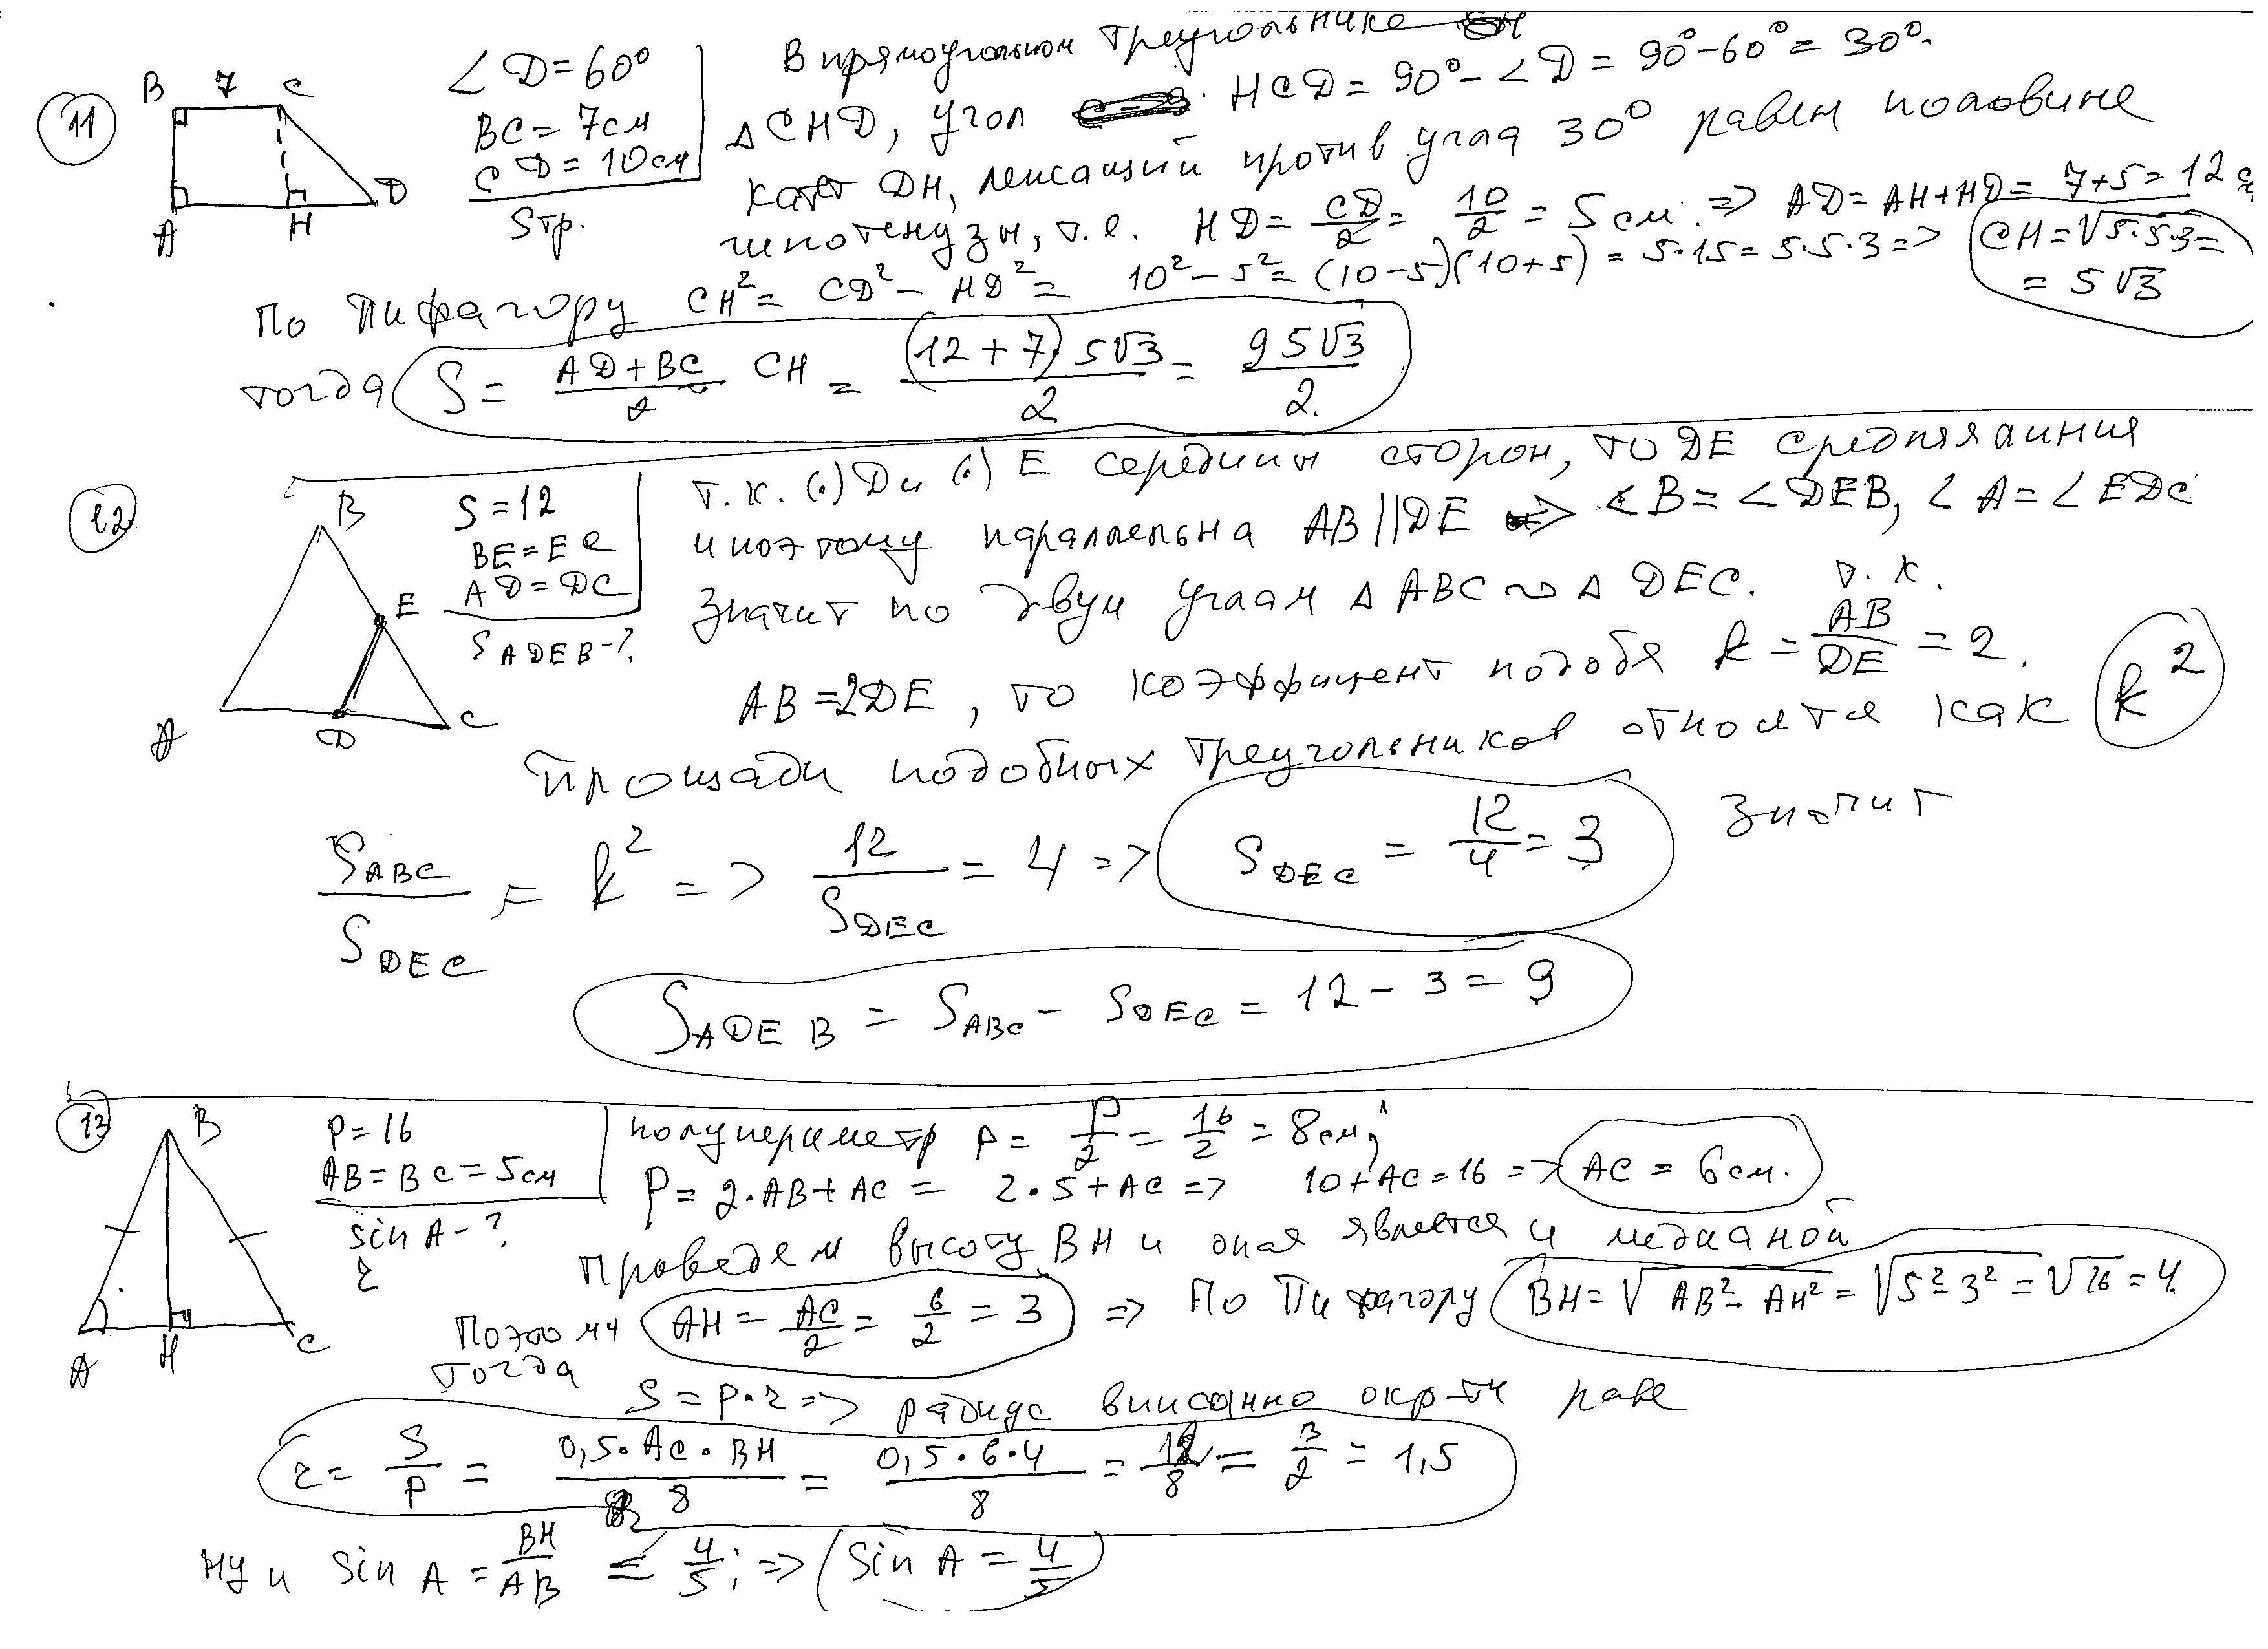 11
B 7 C
A H D
∠D=60°
BC=7см
CD=10см
Sтр.
В прямоугольном треугольнике
△CHD, угол HCD=90°-∠D=90°-60°=30°.
катет DH, лежащий против угла 30° равен половине
гипотенузы, т.е. HD=CD/2=10/2=5см. => AD=AH+HD=7+5=12
По Пифагору CH²=CD²-HD²=10²-5²=(10-5)(10+5)=5·15=5·5·3=> CH=√5·5·3=
=5√3
тогда S=AD+BC/2 CH=(12+7)·5√3/2=95√3/2.
12
B
E
A D C
S=12
BE=EC
AD=DC
S ADEB-?
т.к. (·)D и (·) E середины сторон, то DE средняя линия
и поэтому параллельна AB||DE => ∠B=∠DEB, ∠A=∠EDC
значит по двум углам △ABC∾△DEC. т.к.
AB=2DE, то коэффициент подобя k=AB/DE=2.
Площади подобных треугольников относятся как k²
значит
S ABC/S DEC=k²=>12/S DEC=4=>S DEC=12/4=3
S ADEB=S ABC-S DEC=12-3=9
13
B
A H C
P=16
AB=BC=5см
sin A-?
r
полупериметр p=P/2=16/2=8см;
P=2·AB+AC=2·5+AC=> 10+AC=16=>AC=6см.
Проведем высоту BH и она является и медианой
Поэтому AH=AC/2=6/2=3 => По Пифагору BH=√AB²-AH²=√5²-3²=√16=4.
тогда
S=p·r=> радиус вписанно окр-ти раве
r=S/p=0,5·AC·BH/8=0,5·6·4/8=12/8=3/2=1,5
ну и sin A=BH/AB=4/5;=>sin A=4/5